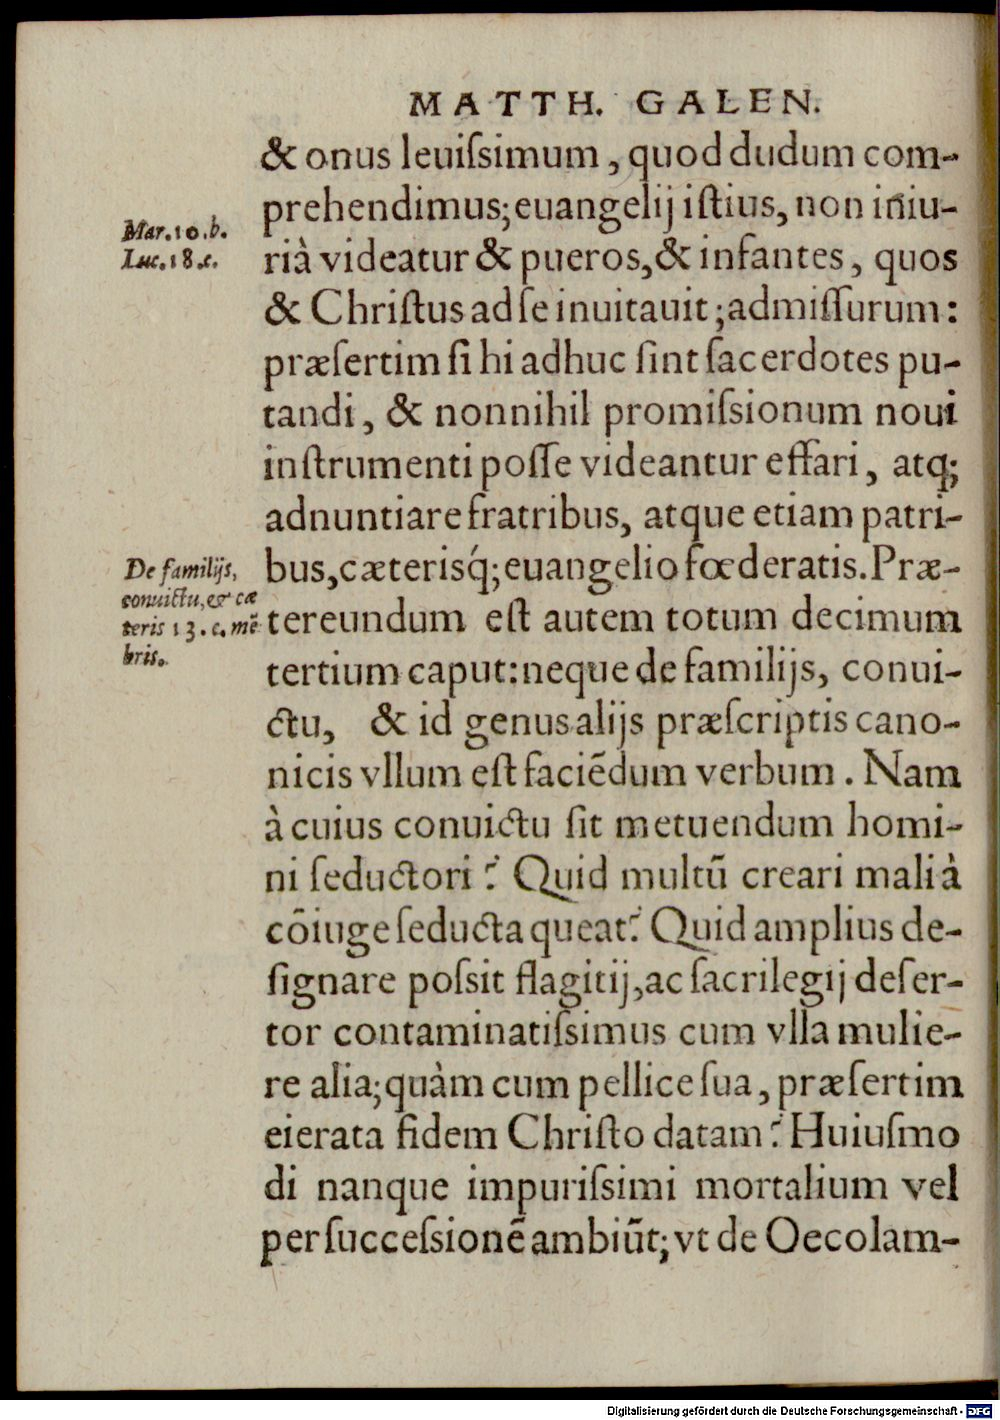 MATTH. GALEN.
& onus leuiſsimum, quod dudum com-
prehendimus; euangelij iſtius, non iniu-
Mar.10.b.
Luc.18.c.
rià videatur & pueros, & infantes, quos
& Chriſtus ad ſe inuitauit; admiſſurum:
præſertim ſi hi adhuc ſint ſacerdotes pu-
tandi, & nonnihil promiſsionum noui
inſtrumenti poſſe videantur effari, atq;
adnuntiare fratribus, atque etiam patri-
bus, cæterisq́; euangelio fœderatis. Præ-
De familijs,
conuictu, & cæ
teris 13. c. mẽ
bris.
tereundum eſt autem totum decimum
tertium caput: neque de familijs, conui-
ctu, & id genus alijs præſcriptis cano-
nicis vllum eſt faciẽdum verbum. Nam
à cuius conuictu ſit metuendum homi-
ni ſeductori? Quid multũ creari mali à
cõiuge ſeducta queat? Quid amplius de-
ſignare poſsit flagitij, ac ſacrilegij deſer-
tor contaminatiſsimus cum vlla mulie-
re alia; quàm cum pellice ſua, præſertim
eierata fidem Chriſto datam? Huiuſmo
di nanque impuriſsimi mortalium vel
per ſucceſsionẽ ambiũt; vt de Oecolam-
Digitalisierung gefördert durch die Deutsche Forschungsgemeinschaft - DFG